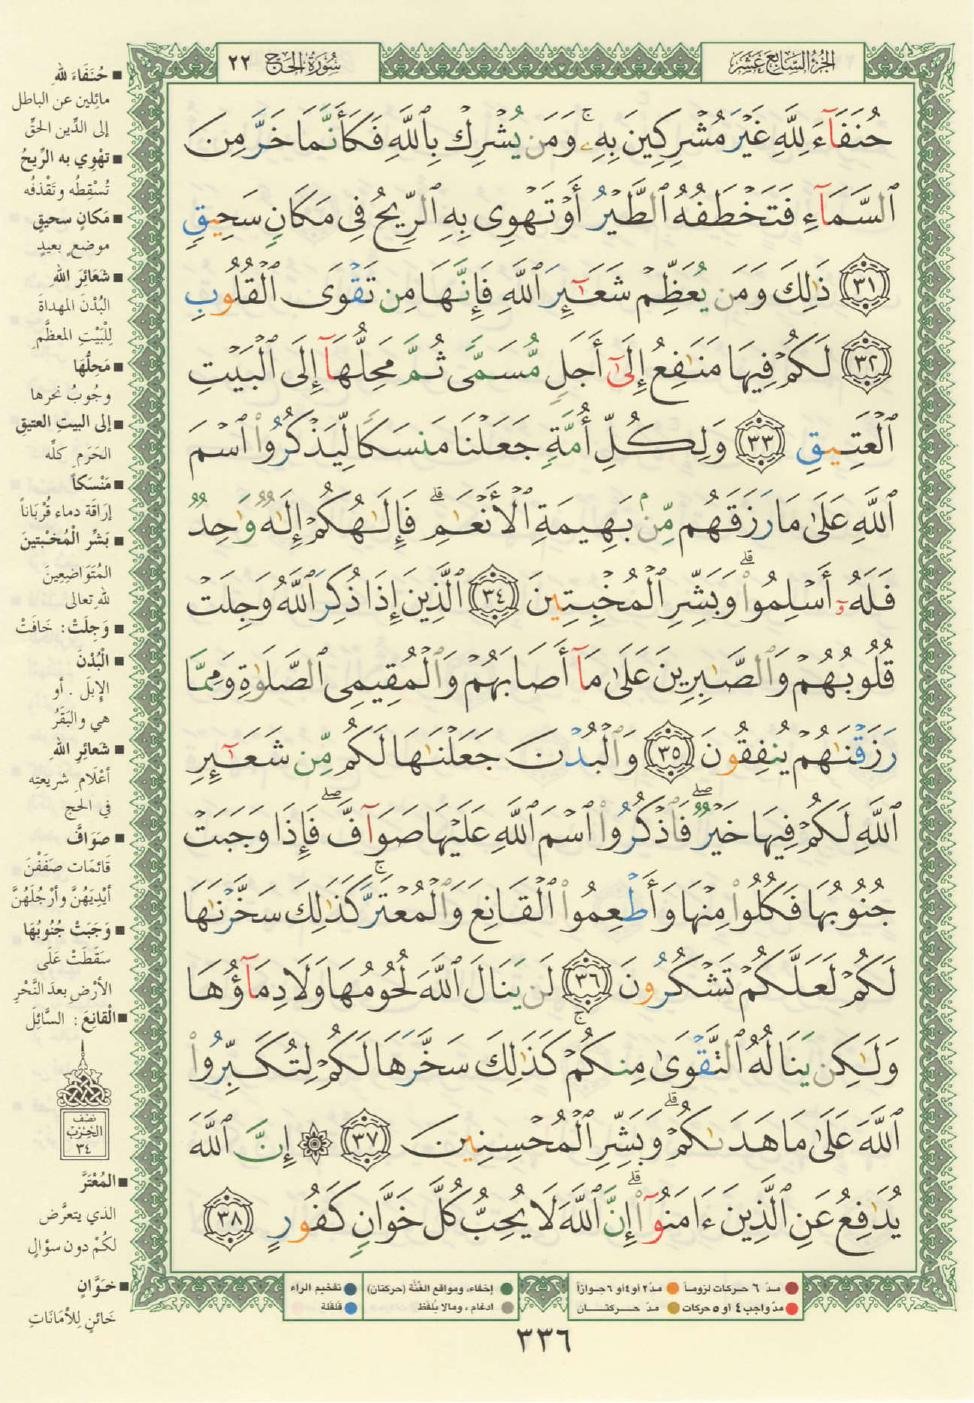 الجزء السابع عشر
سورة الحج ٢٢
حُنَفَآءَ لِلَّهِ غَيْرَ مُشْرِكِينَ بِهِۦ ۚ وَمَن يُشْرِكْ بِٱللَّهِ فَكَأَنَّمَا خَرَّ مِنَ
ٱلسَّمَآءِ فَتَخْطَفُهُ ٱلطَّيْرُ أَوْ تَهْوِى بِهِ ٱلرِّيحُ فِى مَكَانٍ سَحِيقٍ
﴿٣١﴾ ذَٰلِكَ وَمَن يُعَظِّمْ شَعَـٰٓئِرَ ٱللَّهِ فَإِنَّهَا مِن تَقْوَى ٱلْقُلُوبِ
﴿٣٢﴾ لَكُمْ فِيهَا مَنَـٰفِعُ إِلَىٰٓ أَجَلٍ مُّسَمًّى ثُمَّ مَحِلُّهَآ إِلَى ٱلْبَيْتِ
ٱلْعَتِيقِ ﴿٣٣﴾ وَلِكُلِّ أُمَّةٍ جَعَلْنَا مَنسَكًا لِّيَذْكُرُوا۟ ٱسْمَ
ٱللَّهِ عَلَىٰ مَا رَزَقَهُم مِّنۢ بَهِيمَةِ ٱلْأَنْعَـٰمِ ۗ فَإِلَـٰهُكُمْ إِلَـٰهٌ وَٰحِدٌ
فَلَهُۥٓ أَسْلِمُوا۟ ۗ وَبَشِّرِ ٱلْمُخْبِتِينَ ﴿٣٤﴾ ٱلَّذِينَ إِذَا ذُكِرَ ٱللَّهُ وَجِلَتْ
قُلُوبُهُمْ وَٱلصَّـٰبِرِينَ عَلَىٰ مَآ أَصَابَهُمْ وَٱلْمُقِيمِى ٱلصَّلَوٰةِ وَمِمَّا
رَزَقْنَـٰهُمْ يُنفِقُونَ ﴿٣٥﴾ وَٱلْبُدْنَ جَعَلْنَـٰهَا لَكُم مِّن شَعَـٰٓئِرِ
ٱللَّهِ لَكُمْ فِيهَا خَيْرٌ ۖ فَٱذْكُرُوا۟ ٱسْمَ ٱللَّهِ عَلَيْهَا صَوَآفَّ ۖ فَإِذَا وَجَبَتْ
جُنُوبُهَا فَكُلُوا۟ مِنْهَا وَأَطْعِمُوا۟ ٱلْقَانِعَ وَٱلْمُعْتَرَّ ۚ كَذَٰلِكَ سَخَّرْنَـٰهَا
لَكُمْ لَعَلَّكُمْ تَشْكُرُونَ ﴿٣٦﴾ لَن يَنَالَ ٱللَّهَ لُحُومُهَا وَلَا دِمَآؤُهَا
وَلَـٰكِن يَنَالُهُ ٱلتَّقْوَىٰ مِنكُمْ ۚ كَذَٰلِكَ سَخَّرَهَا لَكُمْ لِتُكَبِّرُوا۟
ٱللَّهَ عَلَىٰ مَا هَدَىٰكُمْ ۗ وَبَشِّرِ ٱلْمُحْسِنِينَ ﴿٣٧﴾ ۞ إِنَّ ٱللَّهَ
يُدَٰفِعُ عَنِ ٱلَّذِينَ ءَامَنُوٓا۟ ۗ إِنَّ ٱللَّهَ لَا يُحِبُّ كُلَّ خَوَّانٍ كَفُورٍ ﴿٣٨﴾
■ حُنَفَاءَ لله
مائِلين عن الباطل
إلى الدِّين الحقِّ
■ تهْوِي به الرِّيحُ
تُسْقِطُه وتَقْذفُه
■ مَكانٍ سحيقٍ
موضعٍ بعيدٍ
■ شَعَائِرَ الله
البُدْنَ المهداةَ
لِلْبَيْتِ المعظَّمِ
■ مَحِلُّهَا
وجُوبُ نحرها
■ إلى البيتِ العتيقِ
الحَرَمِ كلِّه
■ مَنْسَكاً
إرَاقَة دماء قُرْبَاناً
■ بَشِّرِ الْمُخْبتينَ
المُتَوَاضِعِينَ
لله تعالى
■ وَجِلَتْ: خَافَتْ
■ الْبُدْنَ
الإبلَ . أو
هي والبَقَرُ
■ شَعائِرِ الله
أعْلَامِ شريعتِه
في الحج
■ صَوَافَّ
قَائمَات صَفَفْنَ
أيْدِيَهُنَّ وأرْجُلَهُنَّ
■ وَجَبَتْ جُنُوبُهَا
سَقَطَتْ عَلَى
الأرْضِ بعدَ النَّحْرِ
■ الْقَانِعَ: السَّائِلَ
نصف
الحزب
٣٤
■ المُعْتَرَّ
الذي يتعرَّض
لكُمْ دون سؤالٍ
■ خَوَّانٍ
خَائنٍ للأمَانَاتِ
مدّ ٦ حركات لزوماً
مدّ ٢ أو ٤ أو ٦ جوازاً
إخفاء، ومواقع الغُنَّة (حركتان)
تفخيم الراء
مدّ واجب ٤ أو ٥ حركات
مدّ حركتان
ادغام، ومالا يُلفَظ
قلقلة
٣٣٦